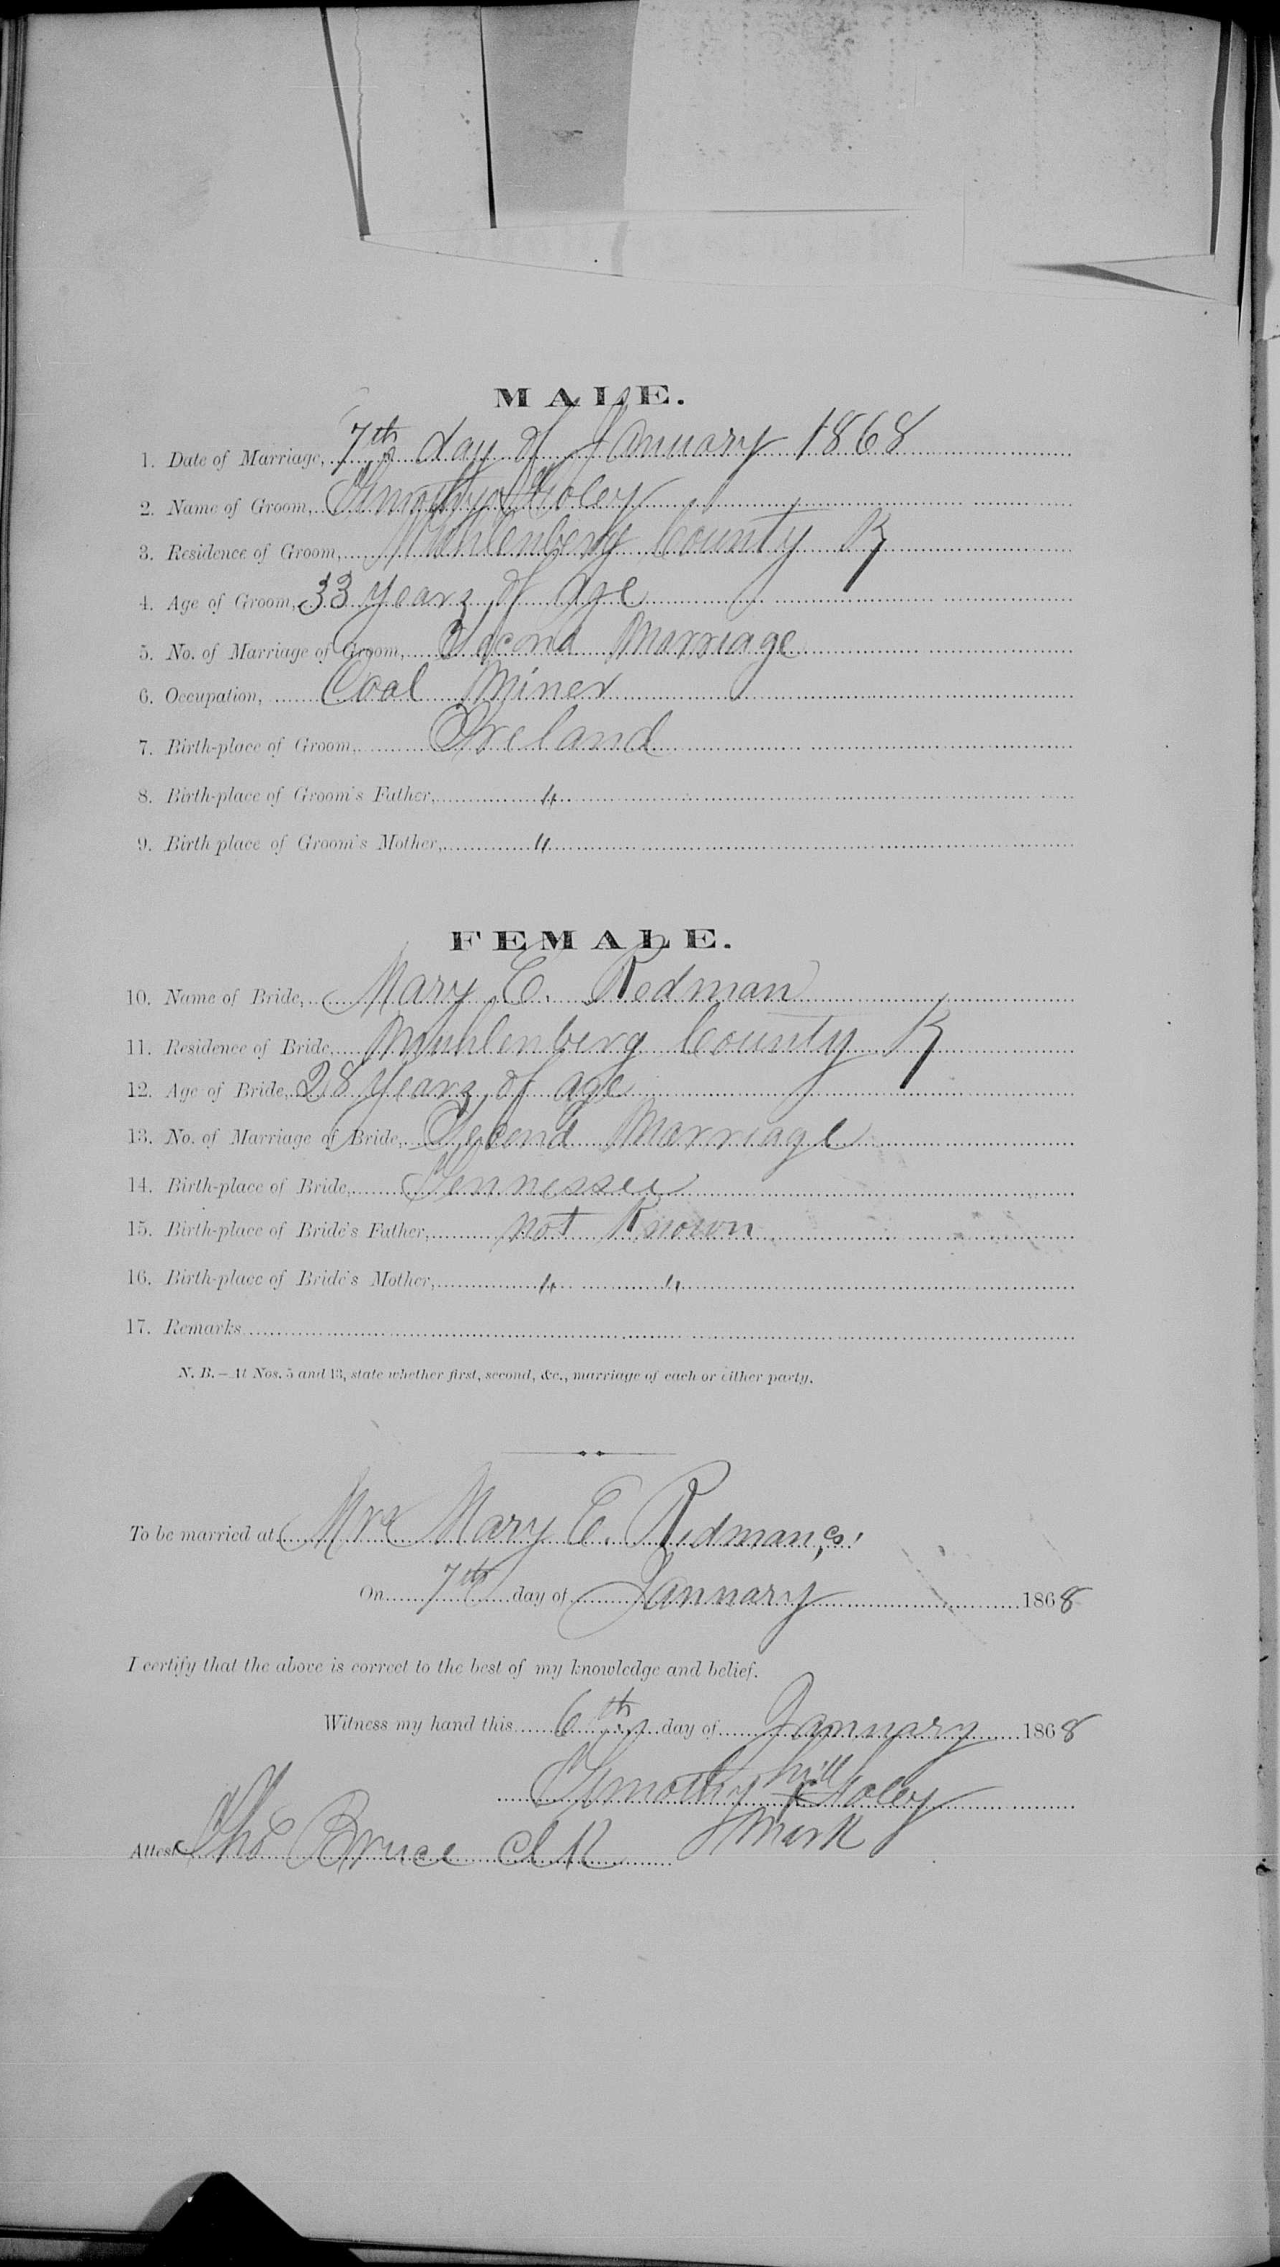 MALE.
1. Date of Marriage, 7th day of January 1868
2. Name of Groom, Timothy Foley
3. Residence of Groom, Muhlenberg County Ky
4. Age of Groom, 33 years of age
5. No. of Marriage of Groom, Second Marriage
6. Occupation, Coal Miner
7. Birth-place of Groom, Ireland
8. Birth-place of Groom's Father, "
9. Birth place of Groom's Mother, "
FEMALE.
10. Name of Bride, Mary E. Redman
11. Residence of Bride, Muhlenberg County Ky
12. Age of Bride, 28 years of age
13. No. of Marriage of Bride, Second Marriage
14. Birth-place of Bride, Tennessee
15. Birth-place of Bride's Father, not Known
16. Birth-place of Bride's Mother, " "
17. Remarks
N. B.—At Nos. 5 and 13, state whether first, second, &c., marriage of each or either party.
To be married at Mrs Mary E. Redman,s
On 7th day of January 1868
I certify that the above is correct to the best of my knowledge and belief.
Witness my hand this 6th day of January 1868
Timothy X Foley
mark
Attest Tho Bruce Clk